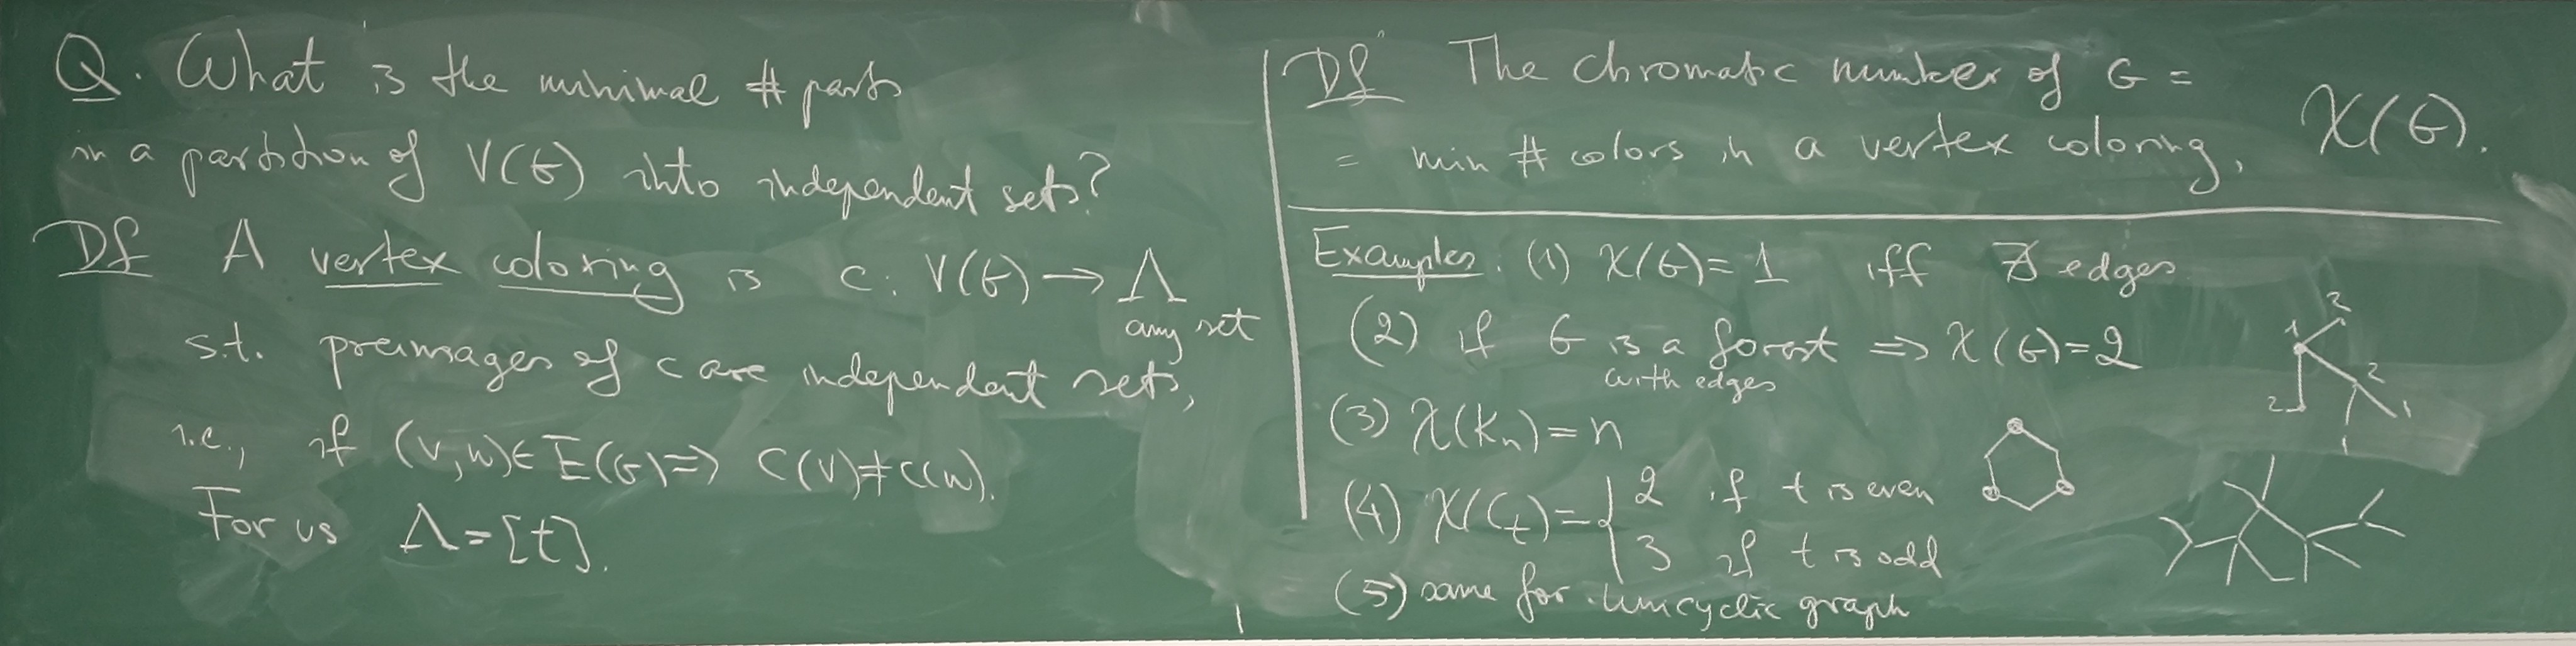 Q. What is the minimal # parts
in a partition of V(G) into independent sets?
Df A vertex coloring is c: V(G) → Λ
any set
s.t. preimages of c are independent sets,
i.e., if (v,w)∈ E(G) ⇒ c(v)≠c(w).
For us Λ=[t].
Df The chromatic number of G =
= min # colors in a vertex coloring, χ(G).
Examples. (1) χ(G)=1 iff ∄ edges
(2) if G is a forest ⇒ χ(G)=2
with edges
(3) χ(Kn)=n
(4) χ(Ct)={ 2 if t is even
3 if t is odd
(5) same for unicyclic graph
2
1
2
2
1
1